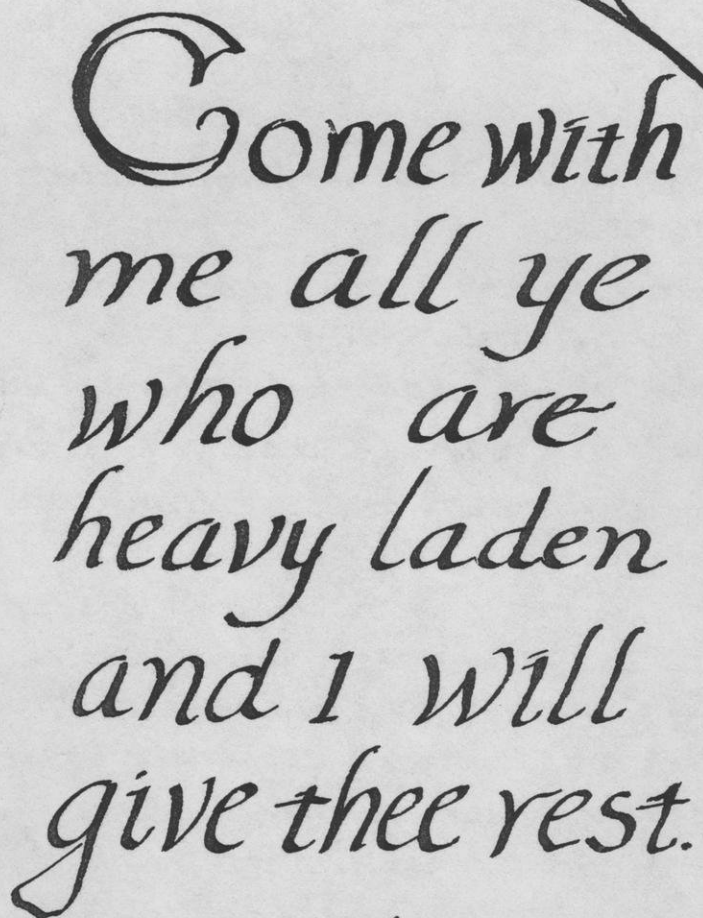 Come with
me all ye
who are
heavy laden
and I will
give thee rest.